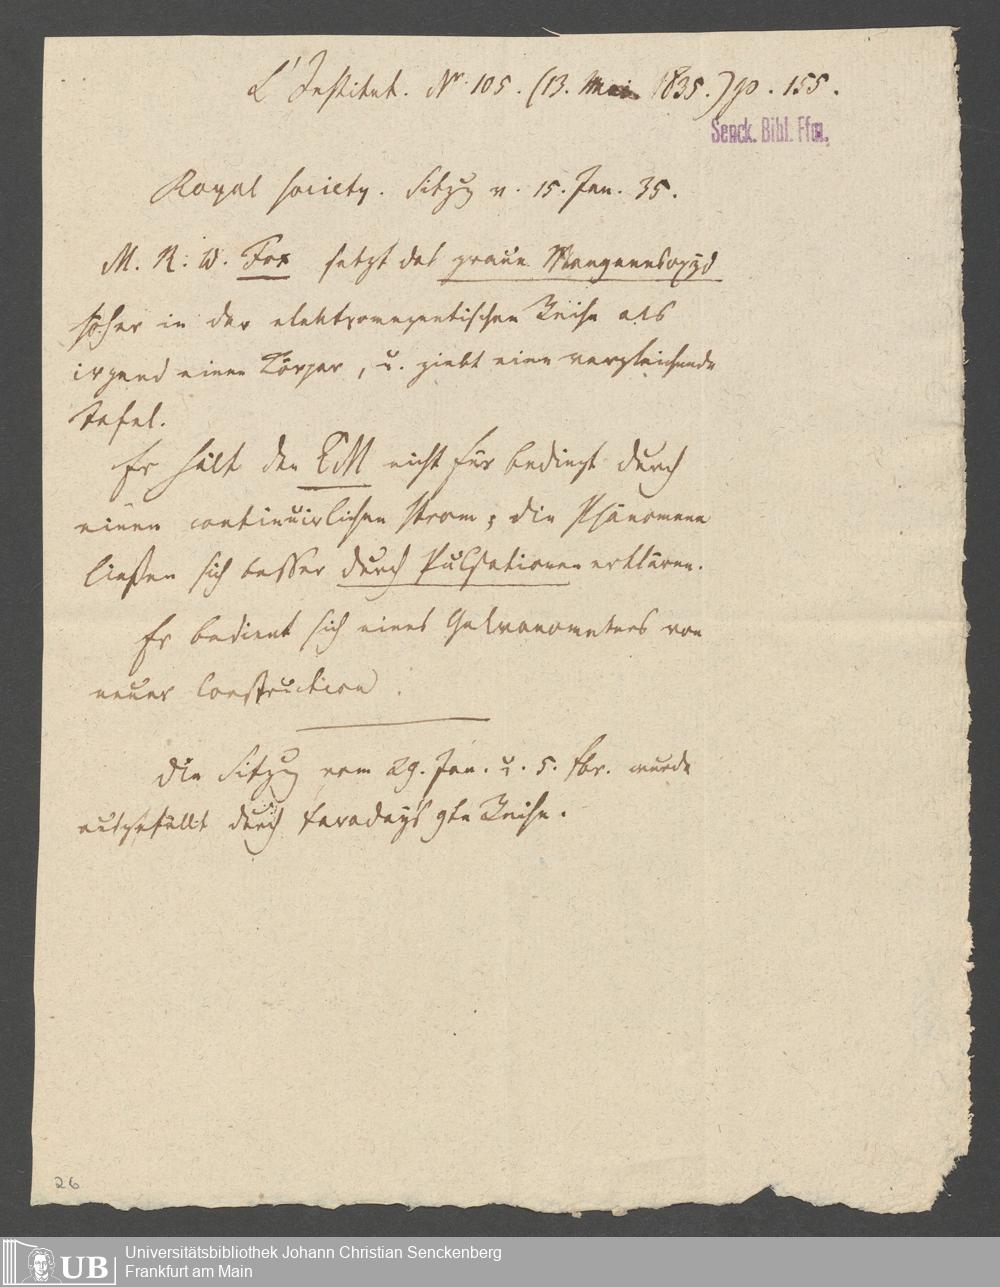 L'Institut. Nr. 105. (13. Mai 1835.) p. 155.
Senck. Bibl. Ffm.
Royal society. Sitzg v. 15. Jan. 35.
M. R. W. Fox setzt das graue Manganesoxyd
höher in der elektromagnetischen Reihe als
irgend einen Körper, u. giebt eine vergleichende
Tafel.
Er hält den EM nicht für bedingt durch
einen continuirlichen Strom; die Phänomene
ließen sich besser durch Pulsationen erklären.
Er bedient sich eines Galvanometers von
neuer Construction.
Die Sitzg vom 29. Jan. u. 5. fbr. wurde
ausgefüllt durch Faraday's 9te Reihe.
26
UB
Universitätsbibliothek Johann Christian Senckenberg
Frankfurt am Main